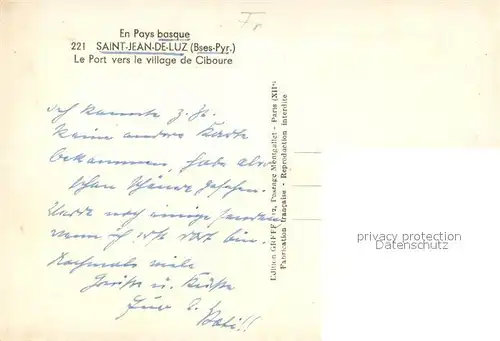 En Pays basque
221 SAINT-JEAN-DE-LUZ (Bses-Pyr.)
Le Port vers le village de Ciboure
ich konnte z. Zt.
keine andere Karte
bekommen, habe aber
schon schöne gesehen.
Werde noch einige senden
wenn ich erst dort bin.
Nochmals viele
Grüße u. Küsse
Euer
Edition GREFF Passage Montgallet - Paris (XIIe)
Fabrication française - Reproduction interdite
privacy protection
(automatically added)